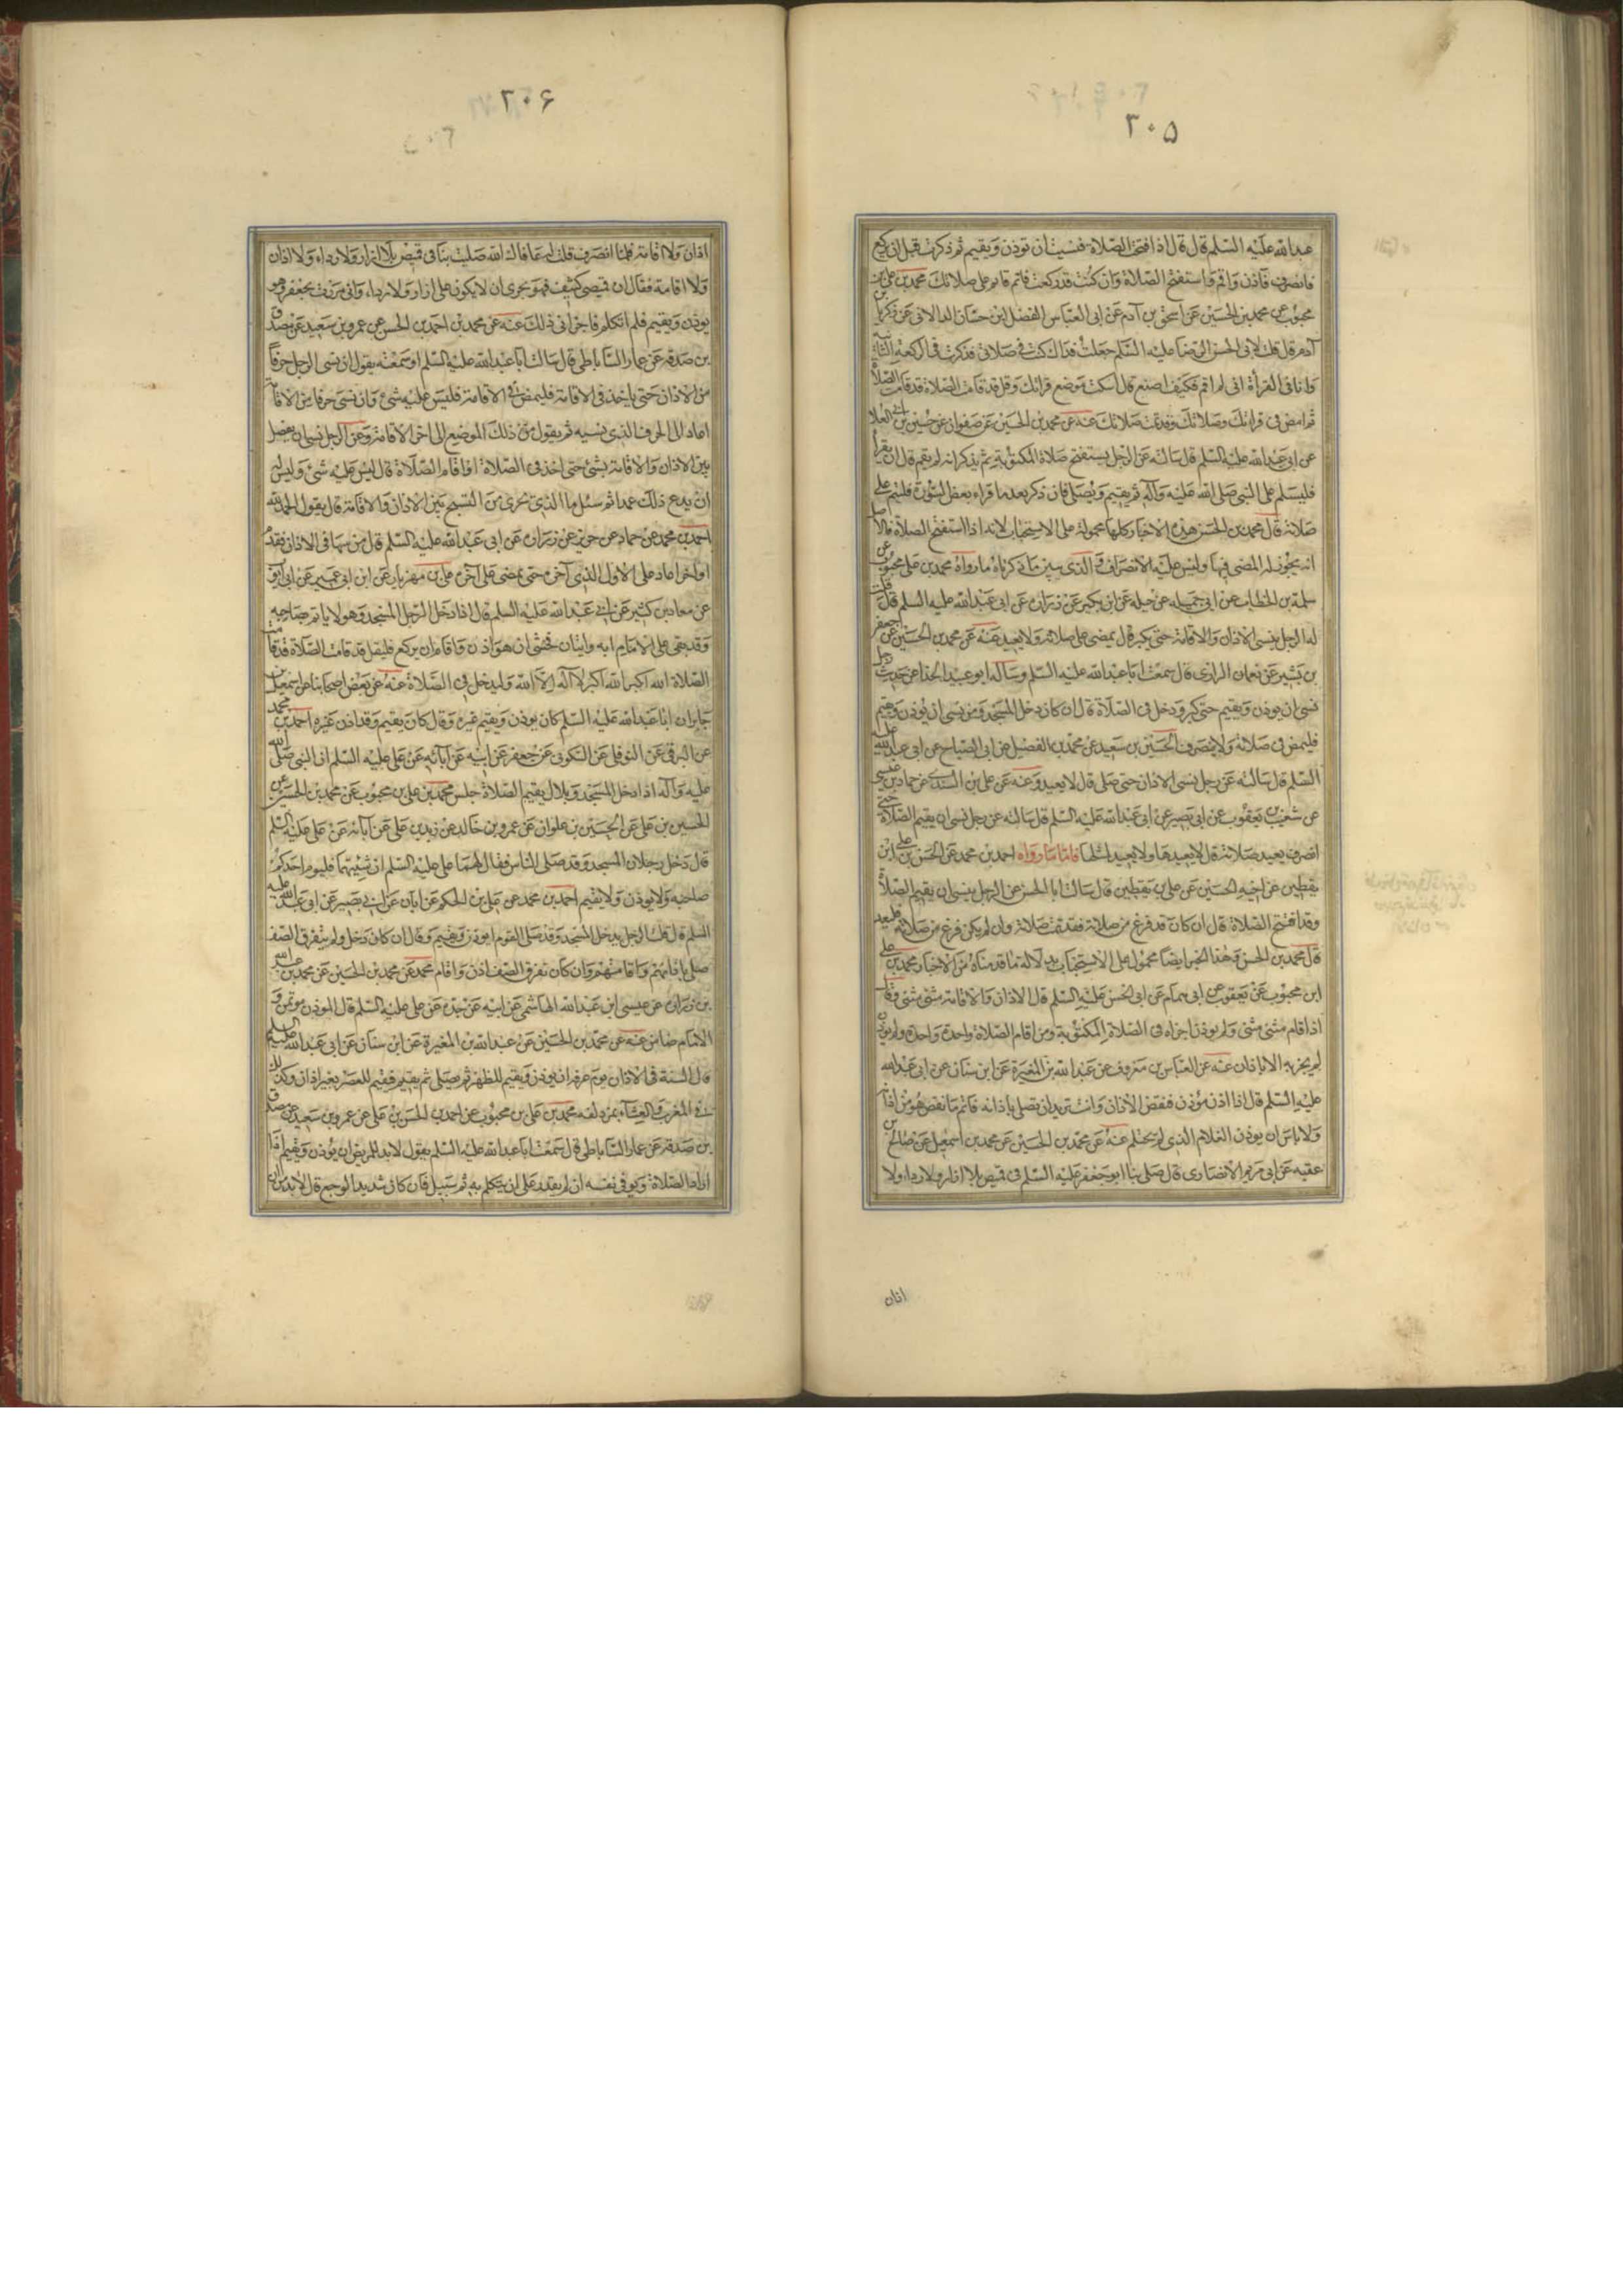 ٣٠۵
عبد الله عليه السلم قال قال اذا افتتحت الصلاة فنسيت ان توذن وتقيم ثم ذكرت قبل ان تركع
فانصرف فاذن واقم واستفتح الصلاة وان كنت قد ركعت فاتم على صلاتك محمد بن علي بن
محبوب عن محمد بن الحسين عن اسحق بن آدم عن ابى العباس الفضل ابن حسان الدالانى عن زكريا بن
آدم قال قلت لابى الحسن الرضا عليه السلم جعلت فداك كنت في صلاتى فذكرت فى الركعة الثانية
وانا فى القرأة انى لم اقم فكيف اصنع قال اسكت موضع قرائك وقل قد قامت الصلاة قد قامت الصلاة
ثم امض فى قرائك وصلاتك وقد تمت صلاتك عنه عن محمد بن الحسين عن صفوان عن حسين بن ابي العلا
عن ابى عبد الله عليه السلم قال سالته عن الرجل يستفتح صلاة المكتوبة ثم يذكر انه لم يقم قال ان يقرأ
فليسلم على النبى صلى الله عليه وآله ثم يقيم ويصلى فان ذكر بعد ما قراء بعض السورة فليتم على
صلاته قال محمد بن الحسن هذه الاخبار كلها محمولة على الاستحباب لانه اذا استفتح الصلاة فالاصل
انه يجوز له المضى فيها وليس عليه الانصراف والذى يبين ما ذكرناه ما رواه محمد بن على محبوب عن
سلمة بن الخطاب عن ابى جميله عن ابن بكير عن زرارة عن ابى عبد الله عليه السلم قال قلت
له الرجل ينسى الاذان والاقامة حتى يكبر قال يمضى على صلاته ولا يعيد عنه عن محمد بن الحسين عن جعفر
بن بشير عن نعمان الرازى قال سمعت ابا عبد الله عليه السلم وساله ابو عبيدة الحذا عن حديث رجل
نسى ان يوذن ويقيم حتى كبر ودخل فى الصلاة قال ان كان دخل المسجد ومن نيته ان يوذن ويقيم
فليمض فى صلاته ولا ينصرف الحسين بن سعيد عن محمد بن الفضيل عن ابى الصباح عن ابى عبد الله عليه
السلم قال سالته عن رجل نسى الاذان حتى صلى قال لا يعيد وعنه عن على بن السندى عن حماد بن عيسى
عن شعيب بن يعقوب عن ابى بصير عن ابى عبد الله عليه السلم قال سالته عن رجل نسى ان يقيم الصلاة حتى
انصرف يعيد صلاته قال لا يعيدها ولا يعيد لمثلها فاما ما رواه احمد بن محمد عن الحسن بن على ابن
يقطين عن اخيه الحسين عن على بن يقطين قال سالت ابا الحسن عن الرجل ينسى ان يقيم الصلاة
وقد افتتح الصلاة قال ان كان قد فرغ من صلاته فقد تمت صلاته وان لم يكن فرغ من صلاته فليعد
قال محمد بن الحسن وهذا الخبر ايضا محمول على الاستحباب بدلالة ما قدمناه من الاخبار محمد بن على
ابن محبوب عن يعقوب عن ابى همام عن ابى الحسن عليه السلم قال الاذان والاقامة مثنى مثنى وقال
اذا قام مثنى مثنى ولم يوذن اجزاه فى الصلاة المكتوبة ومن اقام الصلاة واحدة واحدة ولم يوذن
لم يجزيه الا باذان عنه عن العباس بن معروف عن عبد الله بن المغيرة عن ابن سنان عن ابى عبد الله
عليه السلم قال اذا اذن موذن فنقص الاذان وانت تريد ان تصلى باذانه فاتم ما نقص هو من اذانه
ولا باس ان يوذن الغلام الذى لم يحتلم عنه عن محمد بن الحسين عن محمد بن اسمعيل عن صالح بن
عقبه عن ابى مريم الانصارى قال صلى بنا ابو جعفر عليه السلم فى قميص بلا ازار ولا رداء ولا
اذان
٣٠۶
اذان ولا اقامة فلما انصرف قلت له عافاك الله صليت بنا فى قميص بلا ازار ولا رداء ولا اذان
ولا اقامة فقال ان قميصى كثيف فهو يجزى ان لا يكون على ازار ولا رداء وانى مررت بجعفر وهو
يوذن ويقيم فلم اتكلم فاجزانى ذلك عنه عن محمد بن احمد بن الحسن عن عمرو بن سعيد عن مصدق
بن صدقه عن عمار الساباطى قال سالت ابا عبد الله عليه السلم او سمعته يقول ان نسى الرجل حرفاً
من الاذان حتى ياخذ فى الاقامة فليمض فى الاقامة فليس عليه شئ وان نسى حرفا من الاقامة
عاد الى الحرف الذى نسيه ثم يقول من ذلك الموضع الى اخر الاقامة وعن الرجل نسى ان يفصل
بين الاذان والاقامة بشئ حتى اخذ فى الصلاة او اقام الصلاة قال ليس عليه شئ وليس له
ان يدع ذلك عمدا ثم سئل ما الذى يجزى من التسبيح بين الاذان والاقامة قال يقول الحمد لله
احمد بن محمد عن حماد عن حريز عن زرارة عن ابى عبد الله عليه السلم قال من سها فى الاذان فقدم
او اخر اعاد على الاول الذى آخره حتى يمضى على آخره على بن مهزيار عن ابن ابى عمير عن
عن معاد بن كثير عن ابى عبد الله عليه السلم قال اذا دخل الرجل المسجد وهو لا ياتم صاحبه
وقد بقى على الامام ايه وايتان فخشى ان هو اذن واقام ان يركع فليقل قد قامت الصلاة قد قامت
الصلاة الله اكبر الله اكبر لا اله الا الله وليدخل فى الصلاة عنه عن بعض اصحابنا عن اسمعيل بن
جابر ان ابا عبد الله عليه السلم كان يوذن ويقيم غيره وقال كان يقيم وقد اذن غيره احمد بن محمد
عن البرقى عن النوفلى عن السكونى عن جعفر عن ابيه عن آبائه عن على عليه السلم ان النبى صلى الله
عليه وآله اذا دخل المسجد وبلال يقيم الصلاة جلس محمد بن على بن محبوب عن محمد بن الحسين عن
الحسين بن على عن الحسين بن علوان عن عمرو بن خالد عن زيد بن على عن آبائه عن على عليه السلم
قال دخل رجلان المسجد وقد صلى الناس فقال لهما على عليه السلم ان شئتما فليوم احدكم
صاحبه ولا يوذن ولا يقيم احمد بن محمد عن على بن الحكم عن ابان عن ابى بصير عن ابى عبد الله عليه
السلم قال قلت الرجل يدخل المسجد وقد صلى القوم ايوذن ويقيم وقال ان كان دخل ولم يتفرق الصف
صلى باذانهم واقامتهم وان كان تفرق الصف اذن واقام محمد عن محمد بن الحسين عن محمد بن عبد الله
بن زرارة عن عيسى ابن عبد الله الهاشمى عن ابيه عن جده عن على عليه السلم قال الموذن موتمن و
الامام ضامن عنه عن محمد بن الحسين عن عبد الله بن المغيرة عن ابن سنان عن ابى عبد الله عليه السلم
قال السنة فى الاذان يوم عرفه ان يوذن ويقيم للظهر ثم يصلى ثم يقيم للعصر بغير اذان وكذلك
فى المغرب والعشاء بمزدلفه محمد بن على بن محبوب عن احمد بن الحسن بن على عن عمرو بن سعيد عن مصدق
بن صدقه عن عمار الساباطى قال سمعت ابا عبد الله عليه السلم يقول لا بد للمريض ان يوذن ويقيم اذا
اراد الصلاة ولو فى نفسه ان لم يقدر على ان يتكلم به ثم سئل فان كان شديد الوجع قال لا بد من ان